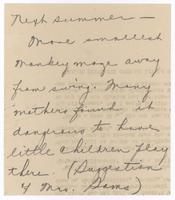 Next summer —
Move smallest
monkey maze away
from swing. Many
mothers found it
dangerous to have
little children play
there. (Suggestion
of Mrs. Sams)